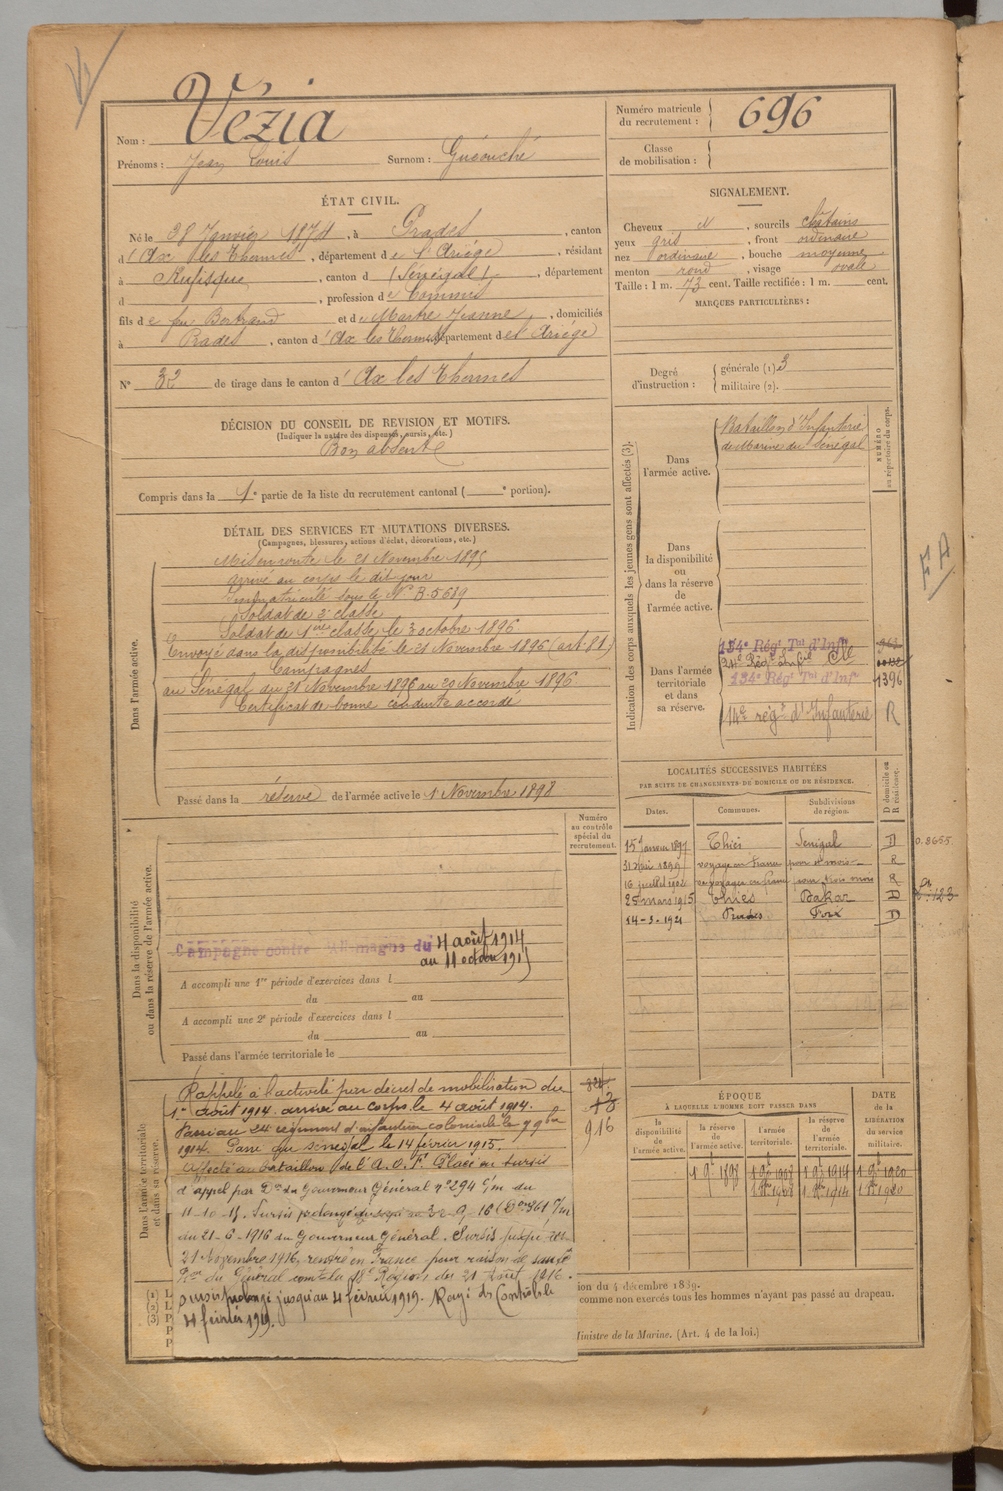 Nom : Vézia
Prénoms : Jean Louis Surnom : Guéouché
Numéro matricule du recrutement : 696
Classe de mobilisation :
ÉTAT CIVIL.
Né le 28 Janvier 1874, à Prades, canton
d'Ax les Thermes, département de l'Ariège, résidant
à Rufisque, canton d (Sénégal), département
d , profession de Commis
fils de feu Bertrand et de Marthe Jeanne, domiciliés
à Prades, canton d'Ax les Thermes, département de l'Ariège
N° 32 de tirage dans le canton d'Ax les Thermes
SIGNALEMENT.
Cheveux id, sourcils châtains
yeux gris, front ordinaire
nez ordinaire, bouche moyenne
menton rond, visage ovale
Taille : 1 m. 73 cent. Taille rectifiée : 1 m. cent.
MARQUES PARTICULIÈRES :
Degré d'instruction : générale (1) 3
militaire (2).
DÉCISION DU CONSEIL DE REVISION ET MOTIFS.
(Indiquer la nature des dispenses, sursis, etc.)
Bon absent
Compris dans la 1e partie de la liste du recrutement cantonal ( e portion).
DÉTAIL DES SERVICES ET MUTATIONS DIVERSES.
(Campagnes, blessures, actions d'éclat, décorations, etc.)
Dans l'armée active.
Mis en route le 21 Novembre 1895
arrivé au corps le dit jour
Immatriculé sous le N° B-5639
Soldat de 2e classe
Soldat de 1ère classe le 3 octobre 1896
Envoyé dans la disponibilité le 21 Novembre 1896 (art. 81)
Campagnes
au Sénégal du 21 Novembre 1896 au 20 Novembre 1896
Certificat de bonne conduite accordé
Passé dans la réserve de l'armée active le 1 Novembre 1898
Indication des corps auxquels les jeunes gens sont affectés (3).
NUMÉRO au répertoire du corps.
Dans l'armée active.
Bataillon d'Infanterie
de Marine du Sénégal
Dans la disponibilité ou dans la réserve de l'armée active.
Dans l'armée territoriale et dans sa réserve.
134e Régt Tal d'Infie
24e Régt Infie Cle
134e Régt Tal d'Infie 1396
14e régt d'Infanterie R
LOCALITÉS SUCCESSIVES HABITÉES
PAR SUITE DE CHANGEMENTS DE DOMICILE OU DE RÉSIDENCE.
Dates. Communes. Subdivisions de région. D domicile ou R résidence.
15 Janvier 1897 Thiès Sénégal D
31 Mai 1899 voyage en France R
16 juillet 1902 R
25 mars 1915 Thiès Dakar D
14-3-1921 Prades Foix D
0.8655
123
EA
Dans la disponibilité ou dans la réserve de l'armée active.
Numéro au contrôle spécial du recrutement.
Campagne contre l'Allemagne du 4 août 1914
au 11 octobre 1915
A accompli une 1re période d'exercices dans l
du au
A accompli une 2e période d'exercices dans l
du au
Passé dans l'armée territoriale le
Dans l'armée territoriale et dans sa réserve.
Rappelé à l'activité par décret de mobilisation du
1er août 1914 arrivé au corps le 4 août 1914.
Passé au 24e régiment d'infanterie coloniale le 7 9bre
1914. Passé au Sénégal le 14 février 1915.
affecté au bataillon de l'A.O.F. Placé en sursis
d'appel par Don du Gouverneur Général n° 294 C/m du
11-10-15. Sursis prolongé 16 (Don 361 C/m
du 21-6-1916 du Gouverneur Général. Sursis jusqu'au
21 Novembre 1916, rentré en France pour raison de santé
du Général comt la 18e Région du 21 août 1916.
sursis prolongé jusqu'au 4 février 1919. Rayé des Contrôles le
4 février 1919.
13
916
ÉPOQUE
À LAQUELLE L'HOMME DOIT PASSER DANS
la disponibilité de l'armée active.
la réserve de l'armée active.
l'armée territoriale.
la réserve de l'armée territoriale.
DATE de la LIBÉRATION du service militaire.
1 9bre 1898 1 9bre 1908 1 9bre 1914 1 9bre 1920
1 8bre 1908 1 8bre 1914 1 8bre 1920
(1)
(2)
(3)
ion du 4 décembre 1889.
comme non exercés tous les hommes n'ayant pas passé au drapeau.
Ministre de la Marine. (Art. 4 de la loi.)